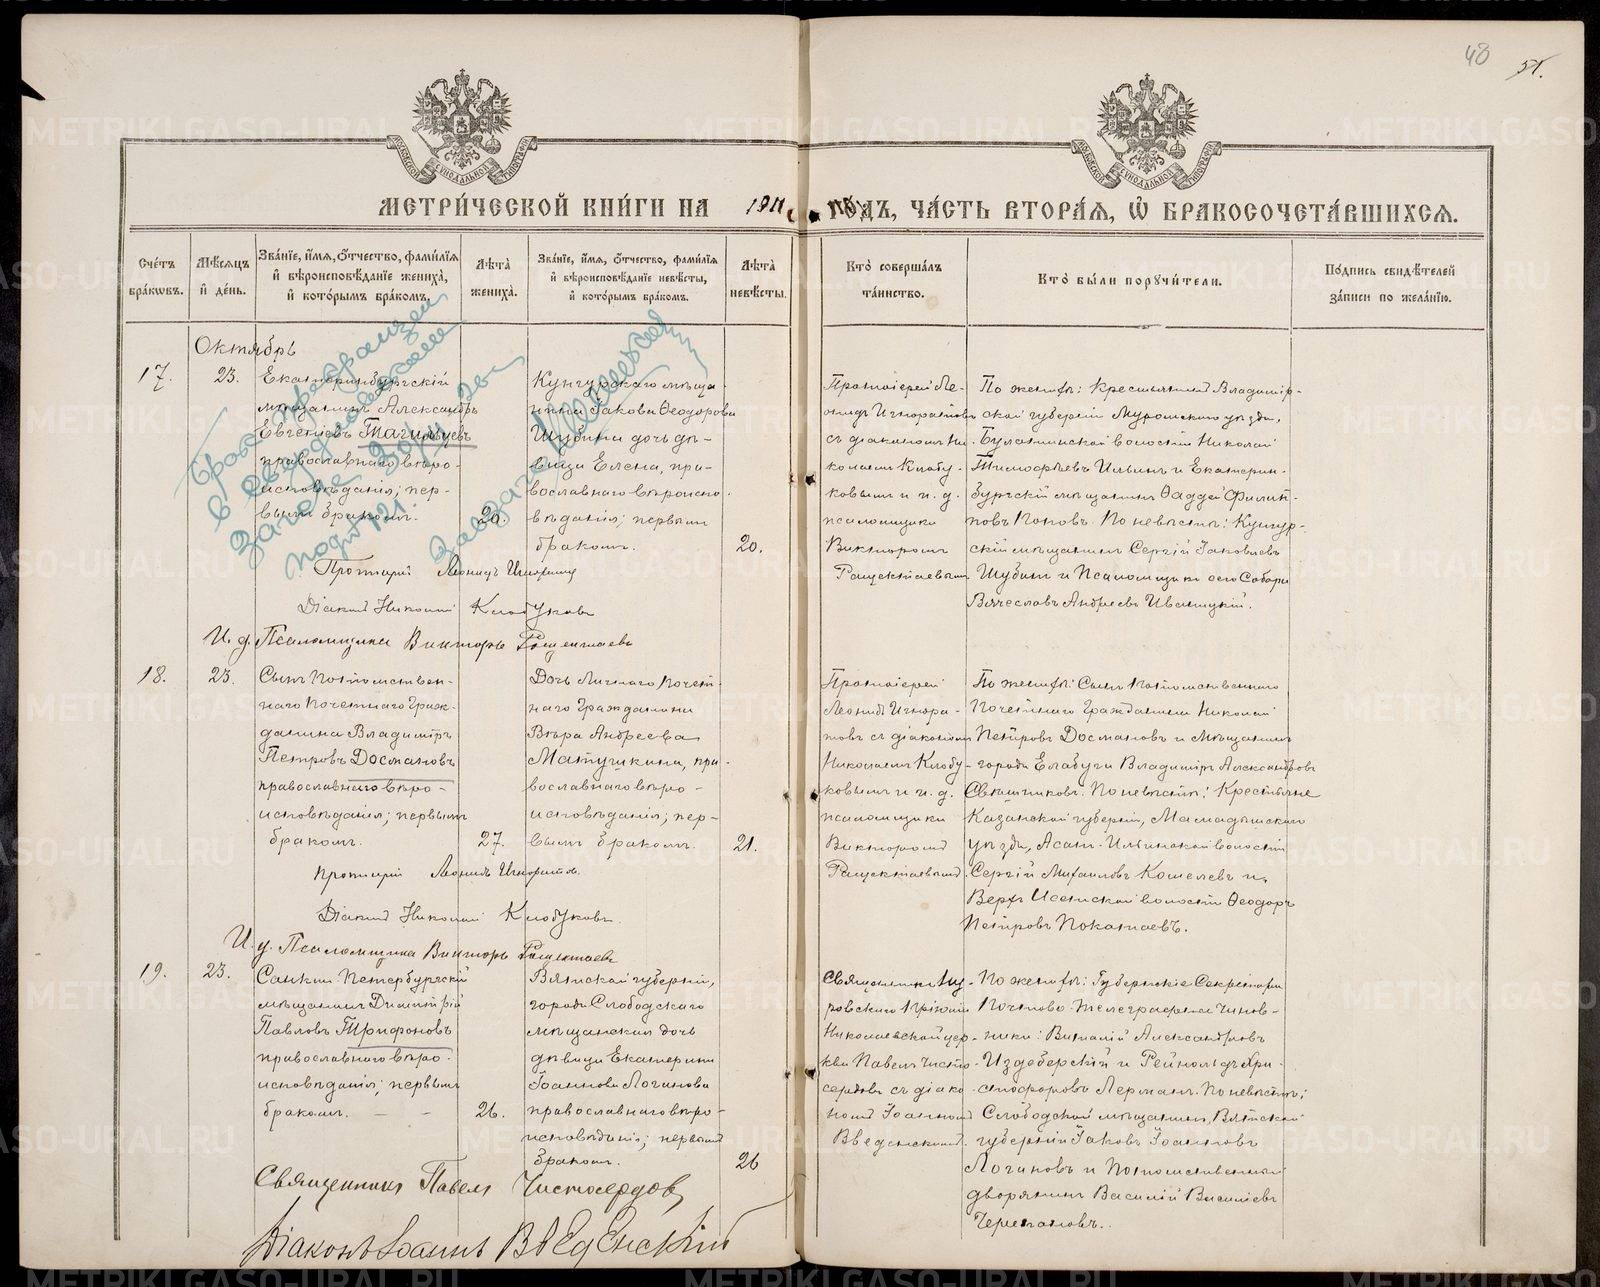 48
51.
МЕТРИ́ЧЕСКОЙ КНИ́ГИ НА 1911 ГОДЪ, ЧА́СТЬ ВТОРА́Я, Ѡ БРАКОСОЧЕТА́ВШИХСЯ.
Сче́тъ бра́кѡвъ.
Мѣ́сяцъ и҆ де́нь.
Зва́нїе, и҆́мя, ѻ҆́тчество, фами́лїя и҆ вѣроисповѣ́данїе жениха̀, и҆ кото́рымъ бра́комъ.
Лѣ́та жениха̀.
Зва́нїе, и҆́мя, ѻ҆́тчество, фами́лїя и҆ вѣроисповѣ́данїе невѣ́сты, и҆ кото́рымъ бра́комъ.
Лѣ́та невѣ́сты.
Кто̀ соверша́лъ та́инство.
Кто̀ бы́ли порꙋчи́тели.
По́дпись свидѣ́телей за́писи по жела́нїю.
Октябрь
17.
23.
Екатеринбургскій
мѣщанинъ Александръ
Евгеніевъ Тагильцевъ
православнаго вѣро-
исповѣданія; пер-
вымъ бракомъ.
20.
Кунгурскаго мѣща-
нина Іакова Ѳеодорова
Шубина дочь дѣ-
вица Елена, пра-
вославнаго вѣроиспо-
вѣданія; первымъ
бракомъ.
20.
Протоіерей Ле-
онидъ Игноратовъ
съ діакономъ Ни-
колаемъ Клобу-
ковымъ и и. д.
псаломщика
Викторомъ
По женихѣ: Крестьянинъ Владимір-
ской губерніи Муромскаго уѣзда,
Булатниковской волости Николай
Тимофѣевъ Ильинъ и Екатерин-
бургскій мѣщанинъ Ѳаддей Филип-
повъ Поповъ. По невѣстѣ: Кунгур-
скій мѣщанинъ Сергій Іаковлевъ
Шубинъ и Псаломщикъ сего Собора
Вячеславъ Андреевъ Иваницкій.
Протоіерей Леонидъ Игноратовъ
Діаконъ Николай Клобуковъ
И. д. Псаломщика Викторъ
18.
23.
Сынъ Потомствен-
наго Почетнаго Граж-
данина Владиміръ
Петровъ Досмановъ
православнаго вѣро-
исповѣданія; первымъ
бракомъ.
27.
Дочь Личнаго Почет-
наго Гражданина
Вѣра Андреева
Матушкина, пра-
вославнаго вѣро-
исповѣданія; пер-
вымъ бракомъ.
21.
Протоіерей
Леонидъ Игнора-
товъ съ діакономъ
Николаемъ Клобу-
ковымъ и и. д.
псаломщика
Викторомъ
По женихѣ: Сынъ Потомственнаго
Почетнаго Гражданина Николай
Петровъ Досмановъ и Мѣщанинъ
города Елабуги Владиміръ Александровъ
Свѣшниковъ. По невѣстѣ: Крестьяне
Казанской губерніи, Мамадышскаго
уѣзда, Асан-Ильинской волости
Сергій Михаиловъ Кошелевъ и
Верхъ Исетской волости Ѳеодоръ
Петровъ Покатаевъ.
протоіерей Леонидъ Игноратовъ
Діаконъ Николай Клобуковъ
И. д. Псаломщика Викторъ
19.
23.
Санктъ-Петербургскій
мѣщанинъ Димитрій
Павловъ Трифоновъ
православнаго вѣро-
исповѣданія; первымъ
бракомъ. — -
26.
Вятской губерніи,
города Слободскаго
мѣщанская дочь
дѣвица Екатерина
Іоаннова Логинова
православнаго вѣро-
исповѣданія; первымъ
бракомъ.
26
Николаевской цер-
кви Павелъ Чисто-
сердовъ съ діако-
номъ Іоанномъ
Введенскимъ.
По женихѣ: Губернскіе Секретари
Почтово-телеграфные Чинов-
ники: Виталій Александровъ
и Рейнольдъ Хри-
стофоровъ Лерманъ. По невѣстѣ:
Слободской мѣщанинъ Вятской
губерніи Іаковъ Іоанновъ
Логиновъ и Потомственный
дворянинъ Василій Василіевъ
Черепановъ.
Священникъ Павелъ Чистосердовъ
Діаконъ Іоаннъ Введенскій